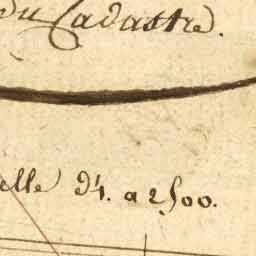 du Cadastre.
elle d'1. a 2500.